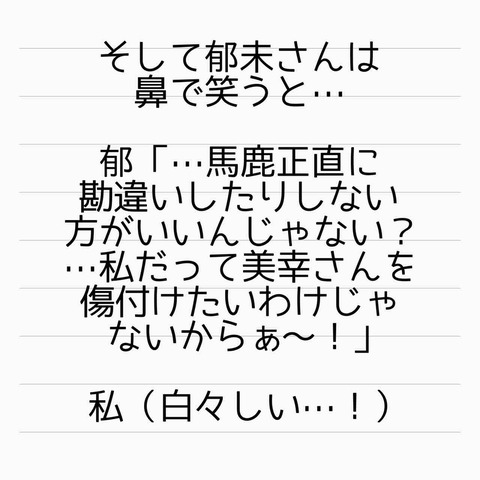 そして郁未さんは
鼻で笑うと…
郁「…馬鹿正直に
勘違いしたりしない
方がいいんじゃない？
…私だって美幸さんを
傷付けたいわけじゃ
ないからぁ〜！」
私（白々しい…！）